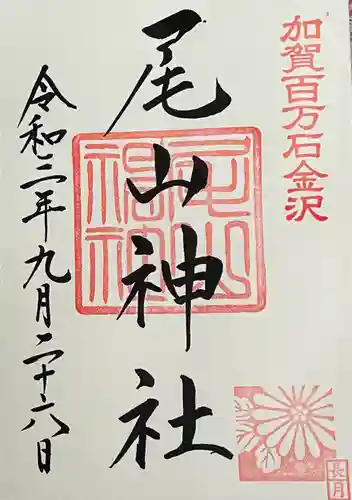 加賀百万石金沢
尾山神社
令和三年九月二十六日
長月